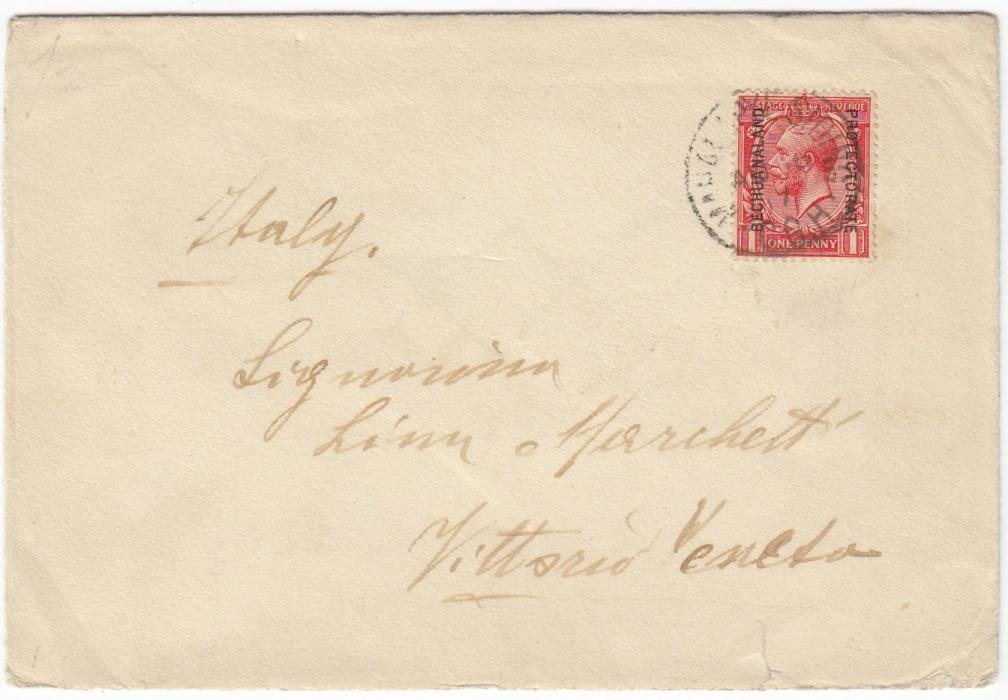 POSTAGE REVENUE
BECHUANALAND
PROTECTORATE
1 ONE PENNY 1
Italy.
Signorina
Lina Marchetti
Vittorio Veneto